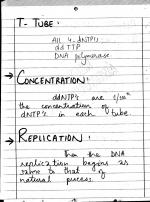 T- TUBE:
All 4 dNTP's
dd TTP
DNA polymerase
→ CONCENTRATION:
ddNTP's are 1/100th
the concentration of
dNTP's in each tube.
→ REPLICATION:
Then the DNA
replication begins as
same to that of
natural process.